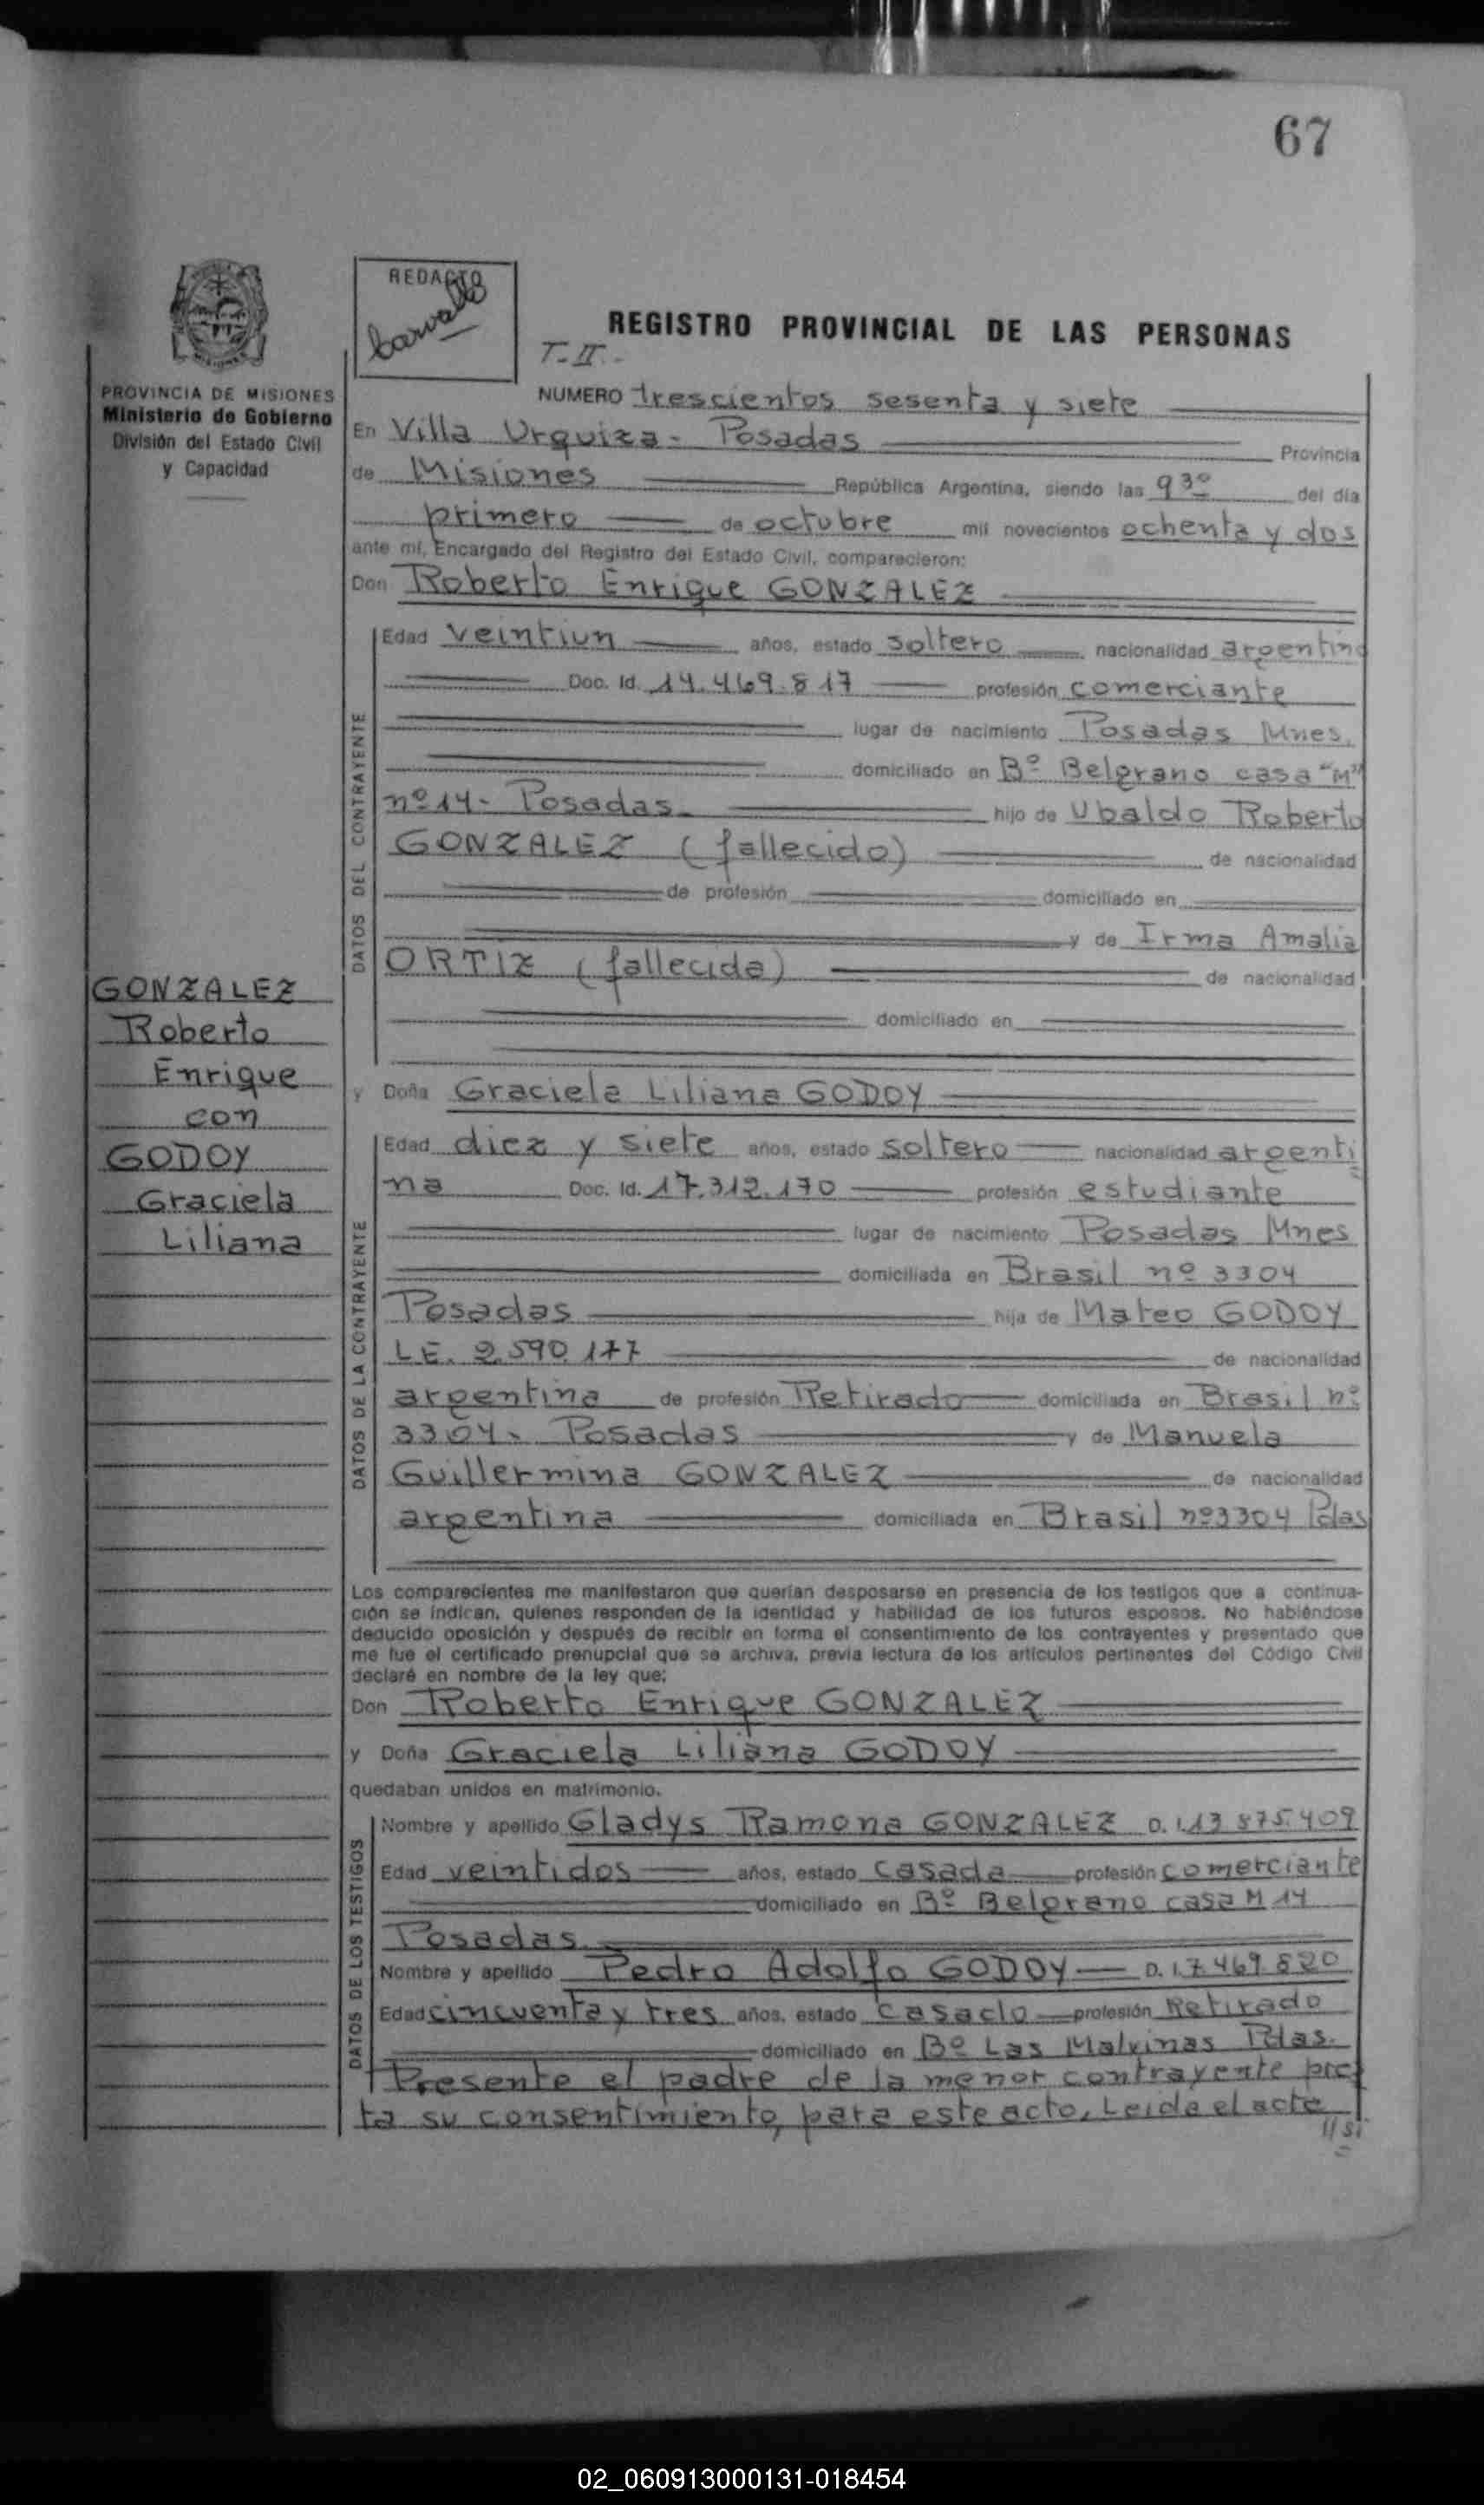 67
REDACTO
Carvallo
REGISTRO PROVINCIAL DE LAS PERSONAS
T-II.-
PROVINCIA DE MISIONES
Ministerio de Gobierno
División del Estado Civil
y Capacidad
NUMERO trescientos sesenta y siete
En Villa Urquiza - Posadas Provincia
de Misiones República Argentina, siendo las 9 30 del día
primero de octubre mil novecientos ochenta y dos
ante mí, Encargado del Registro del Estado Civil, comparecieron:
Don Roberto Enrique GONZALEZ
DATOS DEL CONTRAYENTE
Edad veintiun años, estado soltero nacionalidad argentino
Doc. Id. 14.469.817 profesión comerciante
lugar de nacimiento Posadas Mnes.
domiciliado en Bº Belgrano casa "M"
nº 14- Posadas hijo de Ubaldo Roberto
GONZALEZ (fallecido) de nacionalidad
de profesión domiciliado en
y de Irma Amalia
ORTIZ (fallecida) de nacionalidad
domiciliado en
GONZALEZ
Roberto
Enrique
con
GODOY
Graciela
Liliana
y Doña Graciela Liliana GODOY
DATOS DE LA CONTRAYENTE
Edad diez y siete años, estado soltero nacionalidad argenti
na Doc. Id. 17.312.170 profesión estudiante
lugar de nacimiento Posadas Mnes
domiciliada en Brasil nº 3304
Posadas hija de Mateo GODOY
LE. 2.590.177 de nacionalidad
argentina de profesión Retirado domiciliada en Brasil nº
3304. Posadas y de Manuela
Guillermina GONZALEZ de nacionalidad
argentina domiciliada en Brasil nº 3304 Pdas
Los comparecientes me manifestaron que querían desposarse en presencia de los testigos que a continua-
ción se indican, quienes responden de la identidad y habilidad de los futuros esposos. No habiéndose
deducido oposición y después de recibir en forma el consentimiento de los contrayentes y presentado que
me fue el certificado prenupcial que se archiva, previa lectura de los artículos pertinentes del Código Civil
declaré en nombre de la ley que:
Don Roberto Enrique GONZALEZ
y Doña Graciela Liliana GODOY
quedaban unidos en matrimonio.
DATOS DE LOS TESTIGOS
Nombre y apellido Gladys Ramona GONZALEZ D.I.13 875.409
Edad veintidos años, estado casada profesión comerciante
domiciliado en Bº Belgrano casa M 14
Posadas
Nombre y apellido Pedro Adolfo GODOY D.I.7.469.820
Edad cincuenta y tres años, estado casado profesión Retirado
domiciliado en Bº Las Malvinas Pdas.
Presente el padre de la menor contrayente pres
ta su consentimiento, para este acto, Leida el acta
//si
02_060913000131-018454